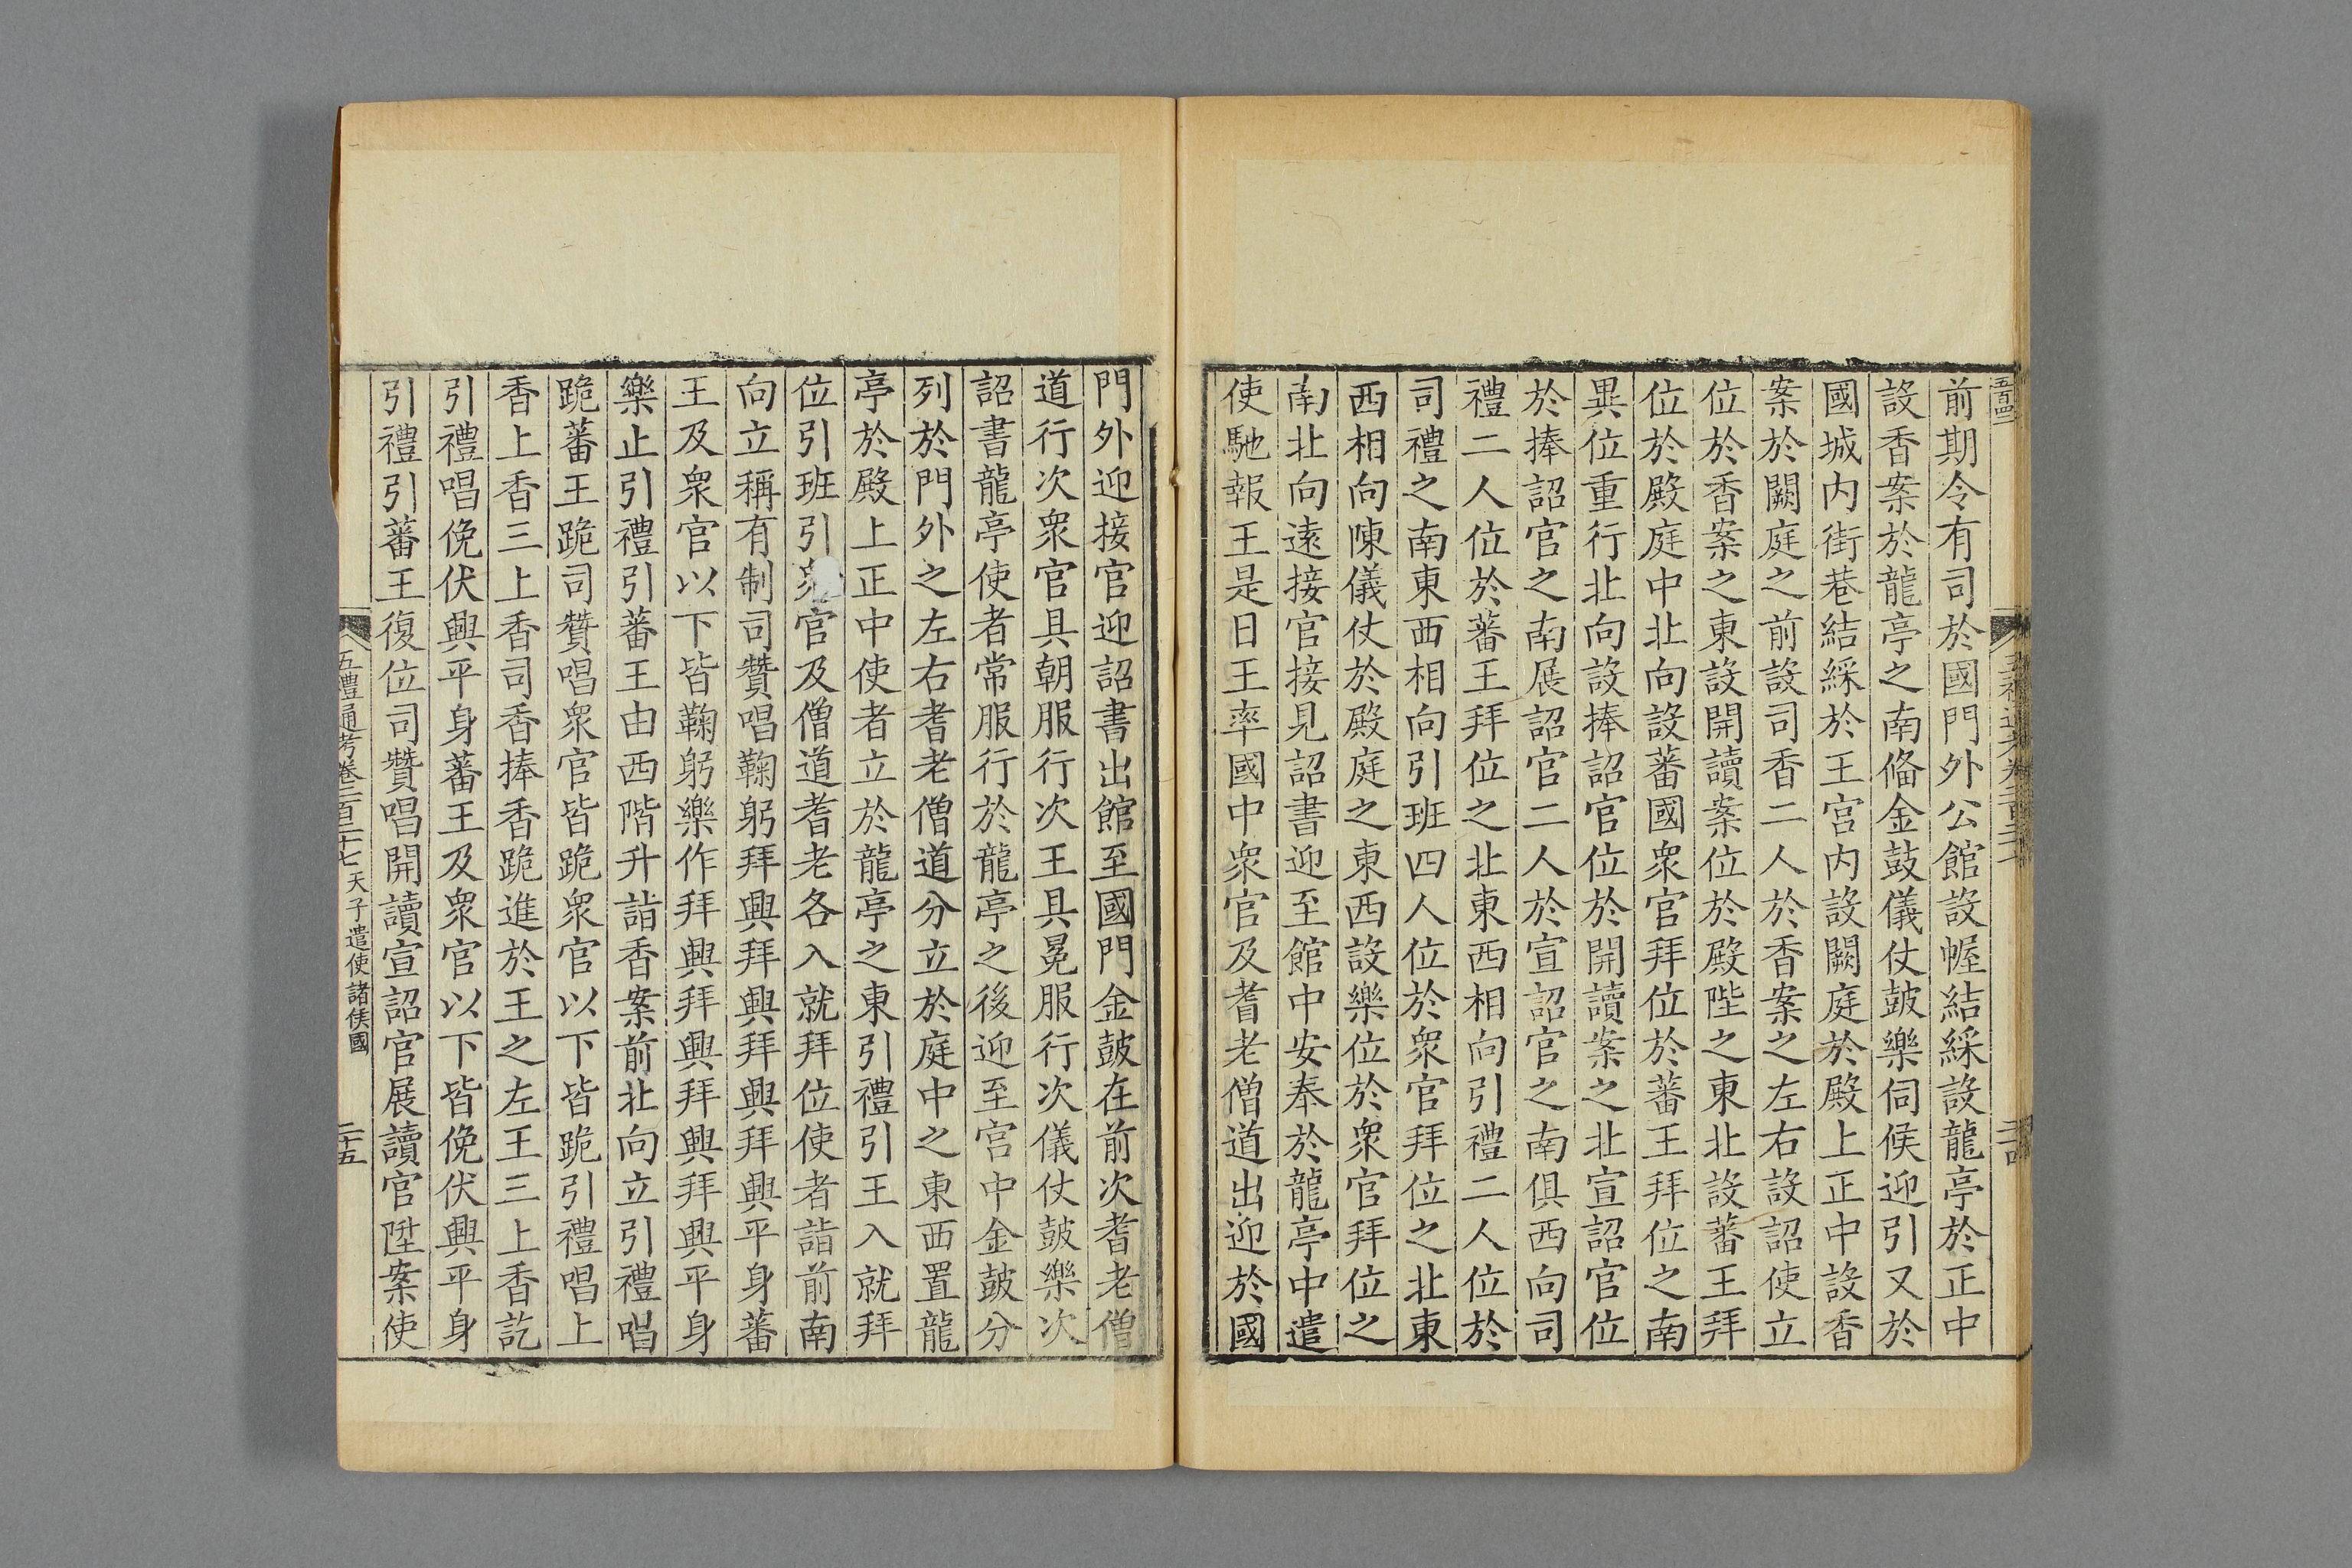 前期令有司於國門外公館設幄結綵設龍亭於正中
設香案於龍亭之南俻金鼓儀仗鼓樂伺候迎引又於
國城内街巷結綵於王宮内設闕庭於殿上正中設香
案於闕庭之前設司香二人於香案之左右設詔使立
位於香案之東設開讀案位於殿陛之東北設蕃王拜
位於殿庭中北向設蕃國衆官拜位於蕃王拜位之南
異位重行北向設捧詔官位於開讀案之北宣詔官位
於捧詔官之南展詔官二人於宣詔官之南俱西向司
禮二人位於蕃王拜位之北東西相向引禮二人位於
司禮之南東西相向引班四人位於衆官拜位之北東
西相向陳儀仗於殿庭之東西設樂位於衆官拜位之
南北向遠接官接見詔書迎至館中安奉於龍亭中遣
使馳報王是日王率國中衆官及耆老僧道出迎於國
門外迎接官迎詔書出館至國門金鼓在前次耆老僧
道行次衆官具朝服行次王具冕服行次儀仗鼓樂次
詔書龍亭使者常服行於龍亭之後迎至宮中金鼓分
列於門外之左右耆老僧道分立於庭中之東西置龍
亭於殿上正中使者立於龍亭之東引禮引王入就拜
位引班引衆官及僧道耆老各入就拜位使者詣前南
向立稱有制司贊唱鞠躬拜興拜興拜興拜興平身蕃
王及衆官以下皆鞠躬樂作拜興拜興拜興拜興平身
樂止引禮引蕃王由西階升詣香案前北向立引禮唱
跪蕃王跪司贊唱衆官皆跪衆官以下皆跪引禮唱上
香上香三上香司香捧香跪進於王之左王三上香訖
引禮唱俛伏興平身蕃王及衆官以下皆俛伏興平身
引禮引蕃王復位司贊唱開讀宣詔官展讀官陞案使
五禮通考卷二百二十七 天子遣使諸侯國 二十五